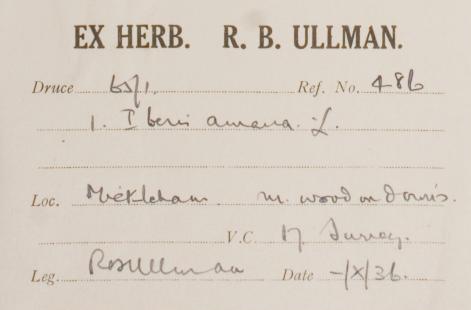 EX HERB. R. B. ULLMAN.
Druce 65/1. Ref. No. 486
1. Iberis amara. L.
Loc. Mickleham wood on downs.
V.C. 17 Surrey.
Leg. RBUllman Date -/X/36.